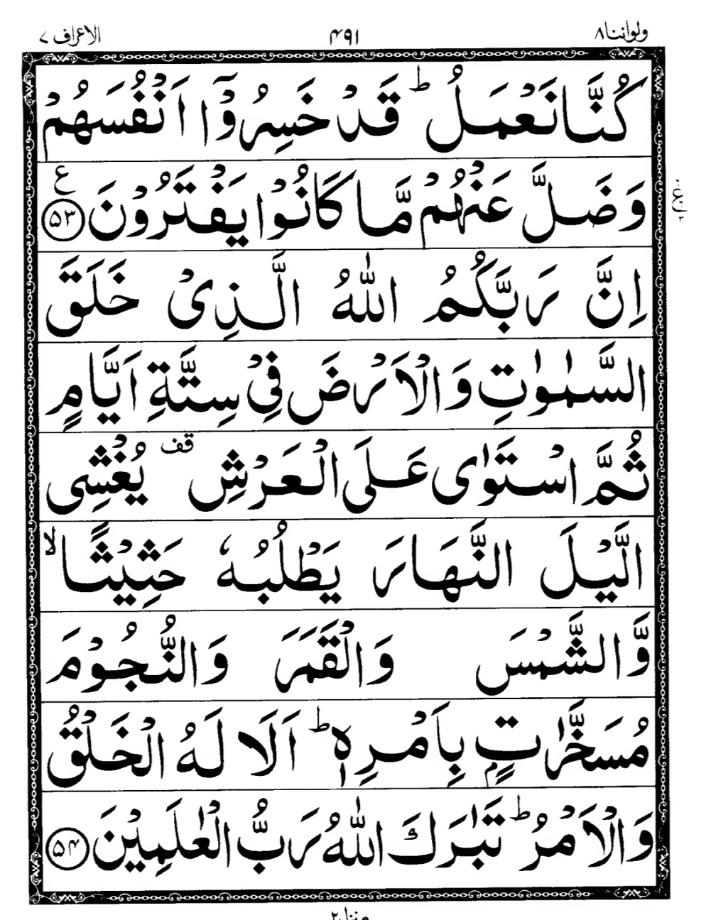 ولواننا۸ ۴۹۱ الاعراف ۷
كُنَّا نَعْمَلُ ؕ قَدْ خَسِرُوْۤا اَنْفُسَهُمْ
وَضَلَّ عَنْهُمْ مَّا كَانُوْا يَفْتَرُوْنَ ﴿۵۳﴾ ع
اِنَّ رَبَّكُمُ اللّٰهُ الَّذِىْ خَلَقَ
السَّمٰوٰتِ وَالْاَرْضَ فِىْ سِتَّةِ اَيَّامٍ
ثُمَّ اسْتَوٰى عَلَى الْعَرْشِ قف يُغْشِى
الَّيْلَ النَّهَارَ يَطْلُبُهٗ حَثِيْثًا ۙ
وَّالشَّمْسَ وَالْقَمَرَ وَالنُّجُوْمَ
مُسَخَّرٰتٍۭ بِاَمْرِهٖ ؕ اَلَا لَهُ الْخَلْقُ
وَالْاَمْرُ ؕ تَبٰرَكَ اللّٰهُ رَبُّ الْعٰلَمِيْنَ ﴿۵۴﴾
منزل۲